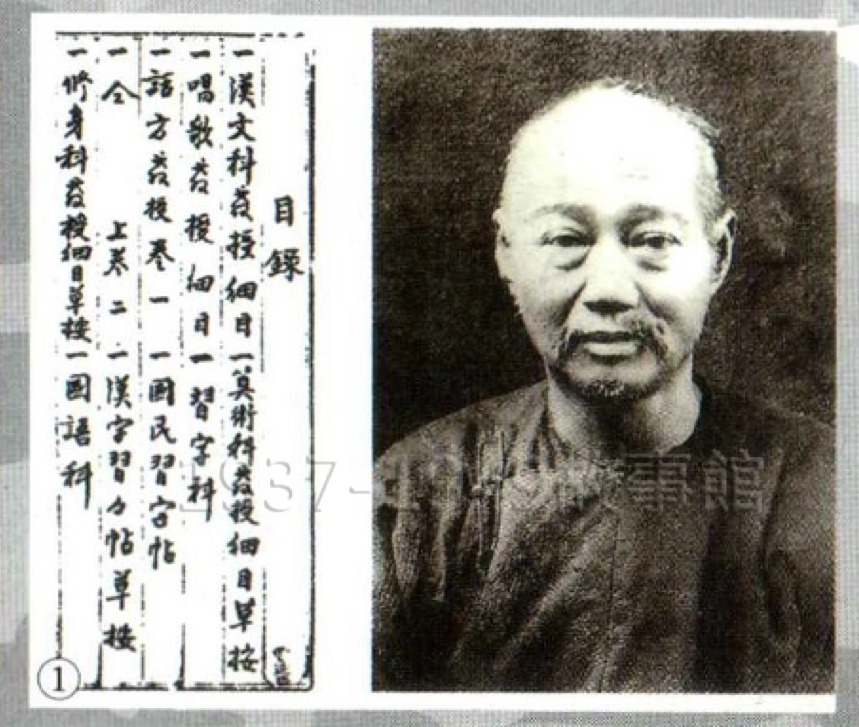 目錄
一漢文科教授細目一算術科教授細目草按
一唱歌教授細目一習字科
一話方教授卷一一國民習字帖
一仝上卷二一漢字習字帖草按
一修身科教授細目草按一國語科
①
1937-1949故事館